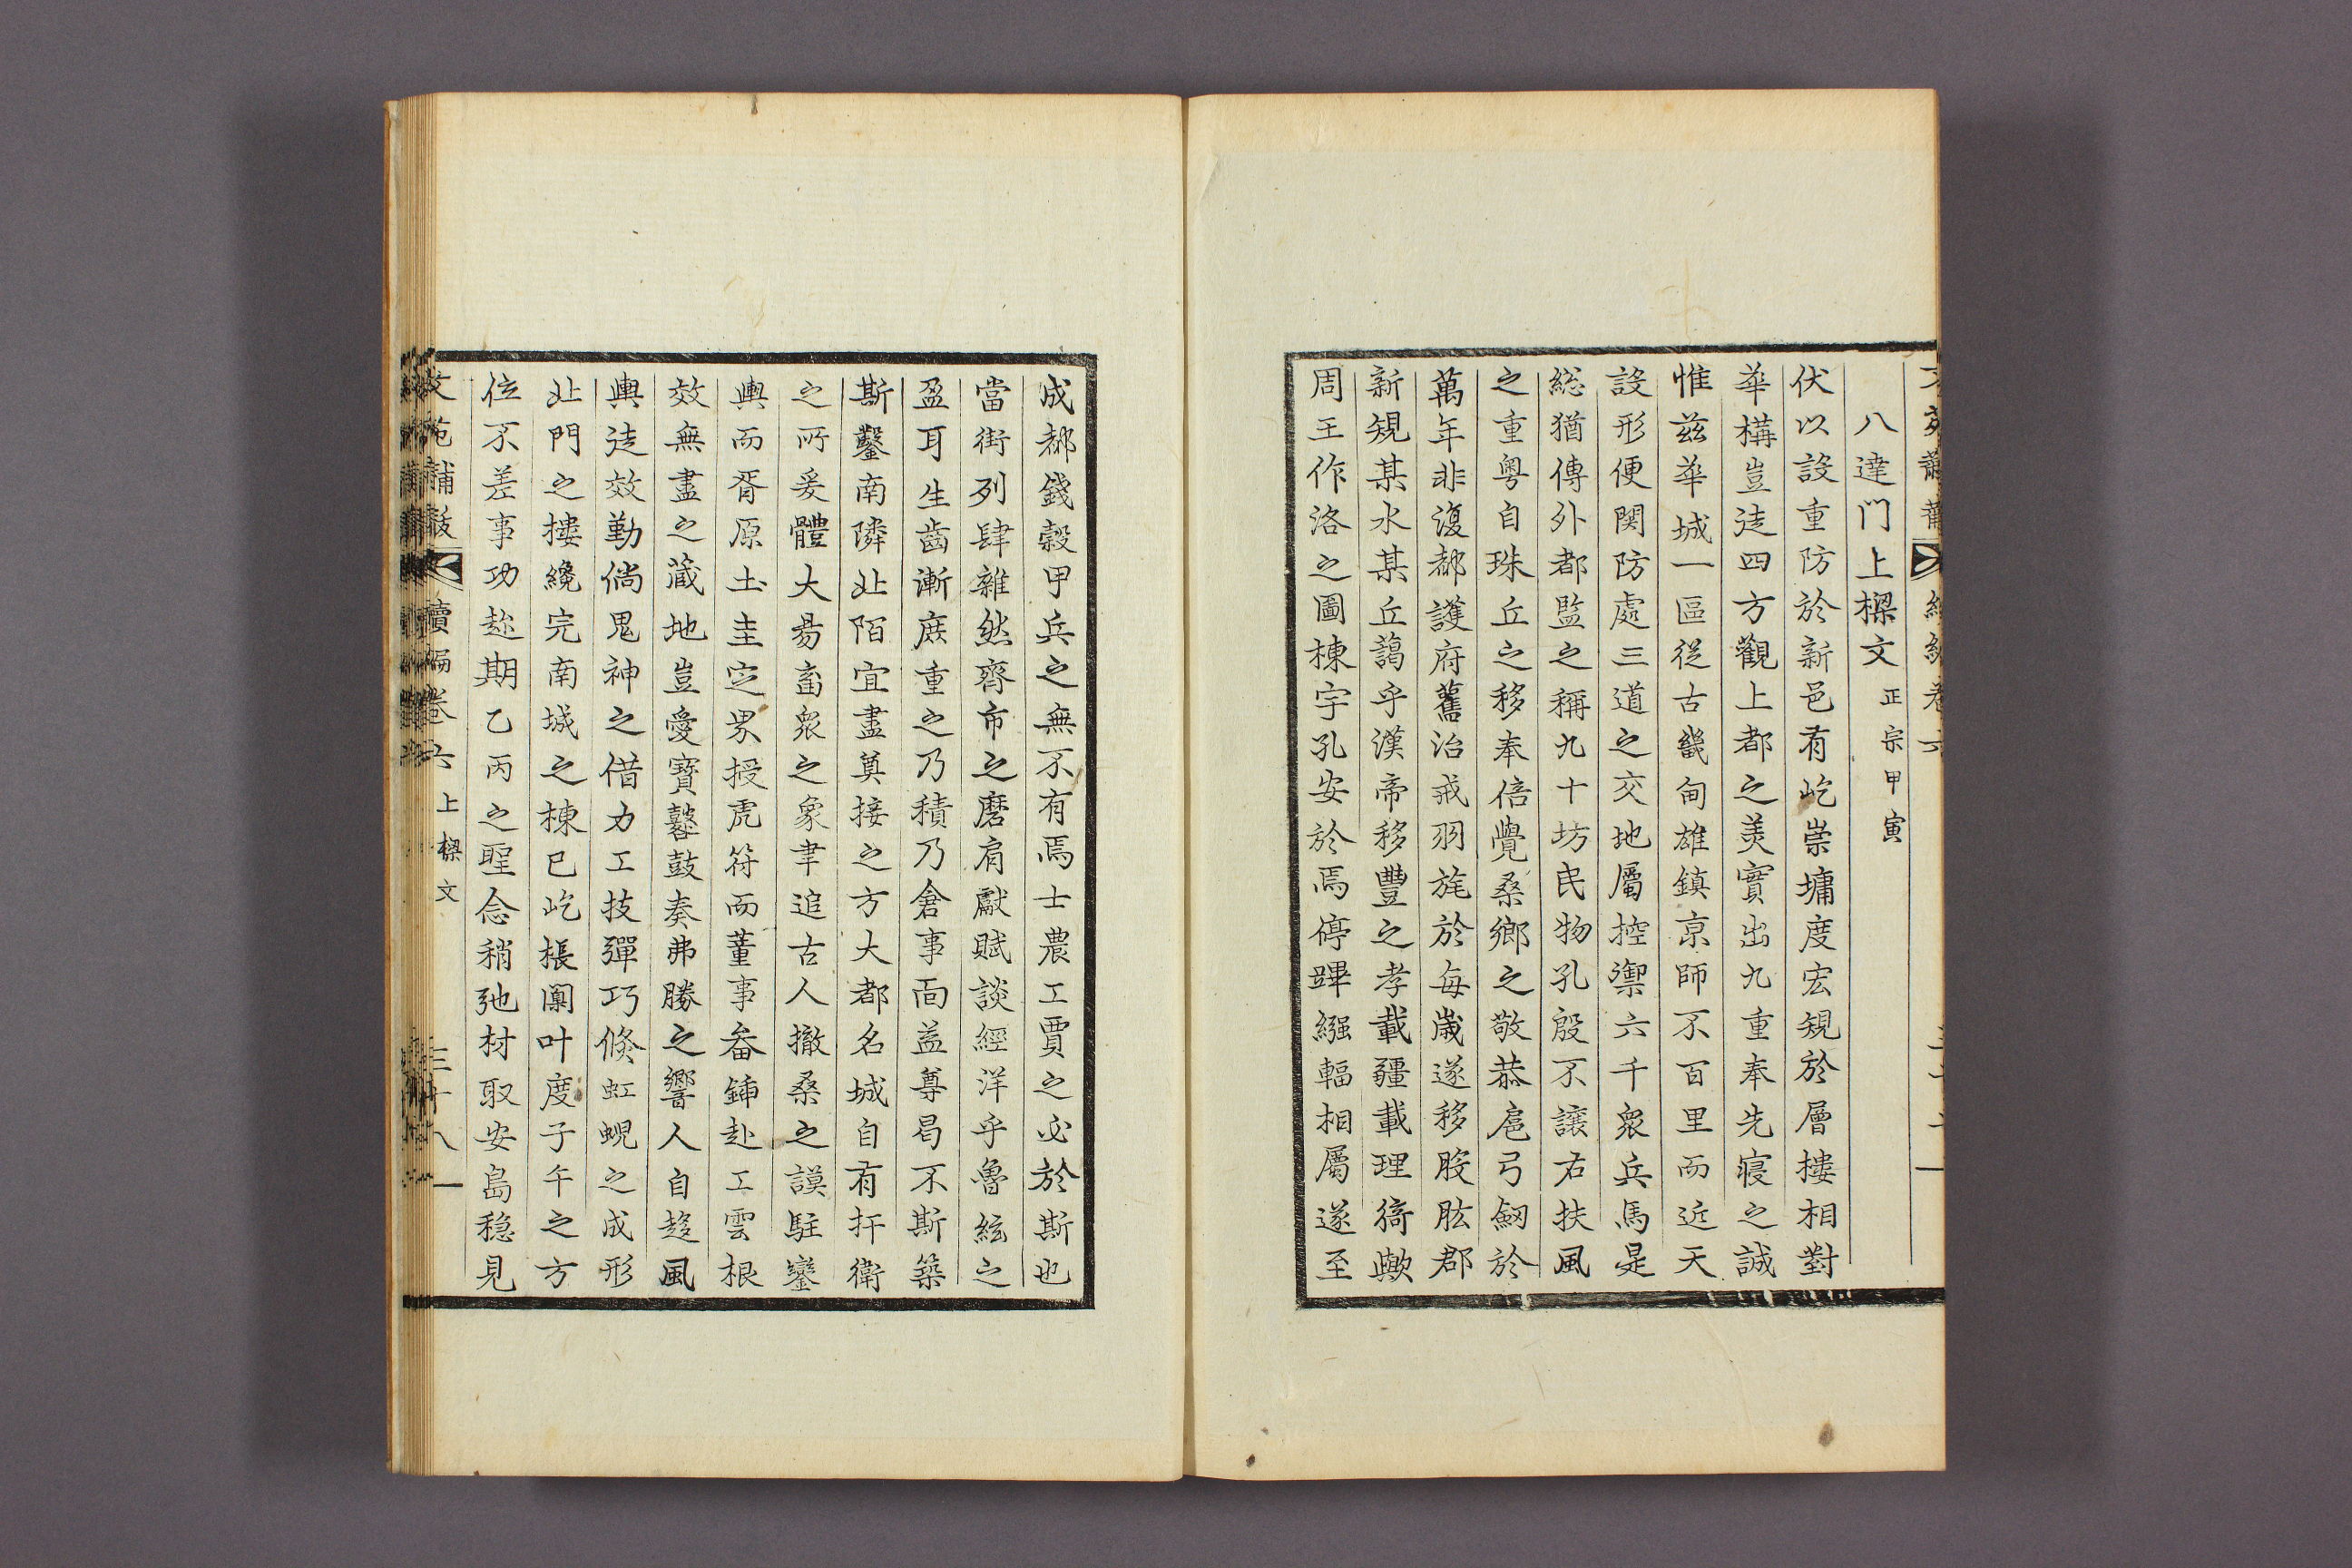 八達門上樑文 正宗甲寅
伏以設重防於新邑有屹崇墉度宏規於層樓相對
華構豈徒四方觀上都之美實出九重奉先寢之誠
惟玆華城一區從古畿甸雄鎮京師不百里而近天
設形便関防處三道之交地屬控禦六千衆兵馬是
総猶傳外都監之稱九十坊民物孔殷不讓右扶風
之重粤自珠丘之移奉倍覺桑鄉之敬恭扈弓劒於
萬年非復都護府舊治戒羽旄於每歲遂移股肱郡
新規某水某丘藹乎漢帝移豐之孝載疆載理猗歟
周王作洛之圖棟宇孔安於焉停蹕繈輻相屬遂至
成都錢穀甲兵之無不有焉士農工賈之必於斯也
當街列肆雜然齊市之磨肩獻賦談經洋乎魯絃之
盈耳生齒漸庶重之乃積乃倉事面益尊曷不斯築
斯鑿南隣北陌宜盡奠接之方大都名城自有扞衛
之所爰體大易畜衆之象聿追古人撤桑之謨駐鑾
輿而胥原土圭定界授虎符而董事畚鍤赴工雲根
效無盡之藏地豈愛寶鼛鼓奏弗勝之響人自趍風
輿徒效勤倘鬼神之借力工技殫巧倏虹蜺之成形
北門之樓纔完南城之棟已屹棖闑叶度子午之方
位不差事功趂期乙丙之聖念稍弛材取安島穩見
文苑黼黻 續編卷六 上樑文 三十八